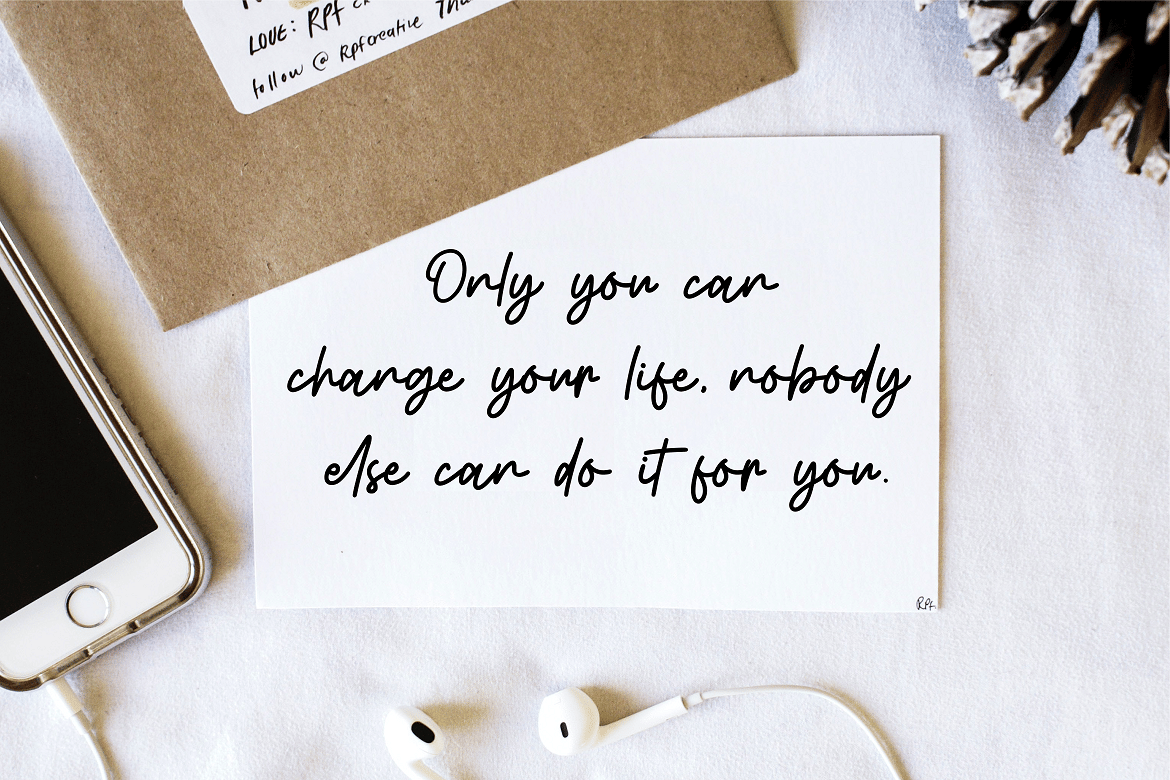 LOVE: RPF
follow @ Rpfcreative
Only you can
change your life. nobody
else can do it for you.
RPF